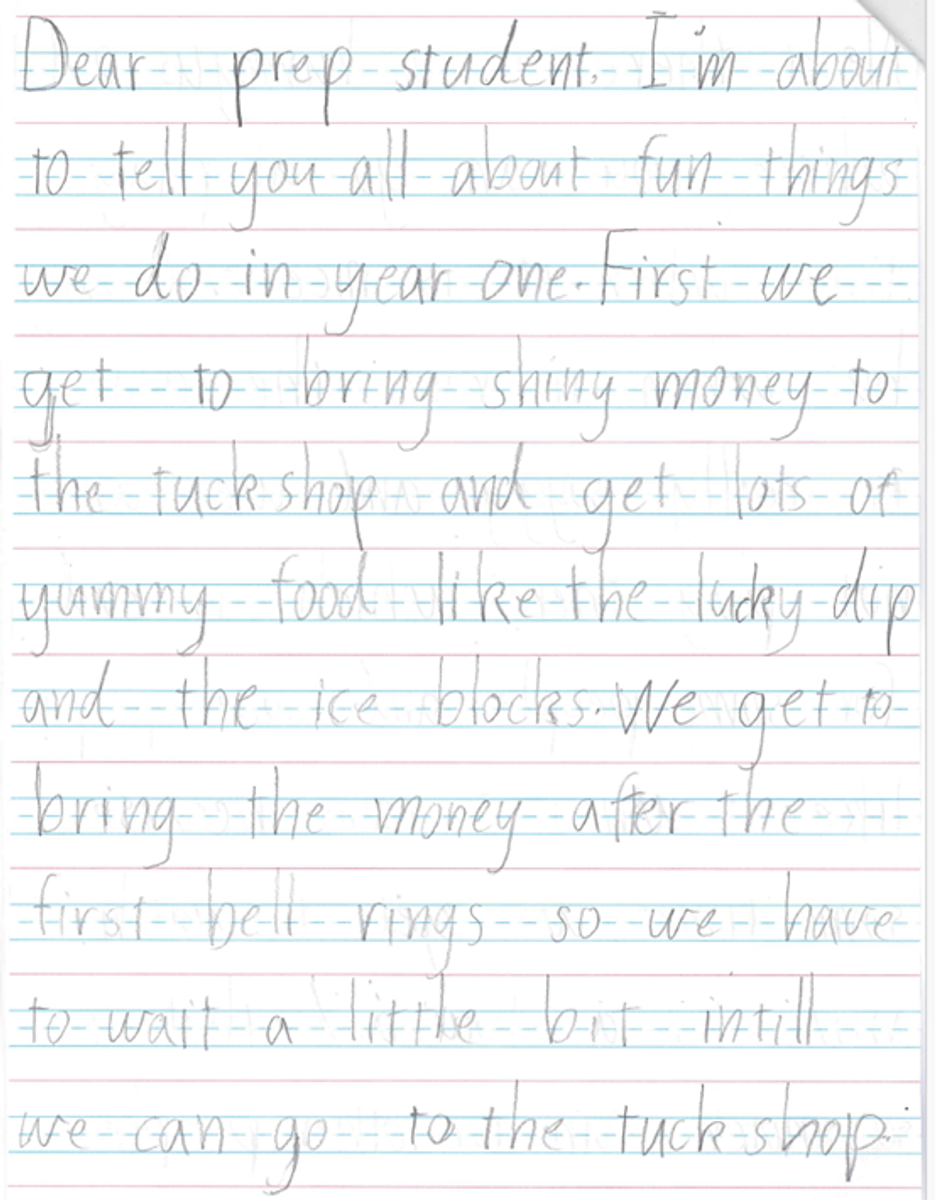 Dear prep student. I'm about
to tell you all about fun things
we do in year one. First we
get to bring shiny money to
the tuckshop and get lots of
yummy food like the lucky dip
and the ice blocks. We get to
bring the money after the
first bell rings so we have
to wait a little bit intill
we can go to the tuckshop.